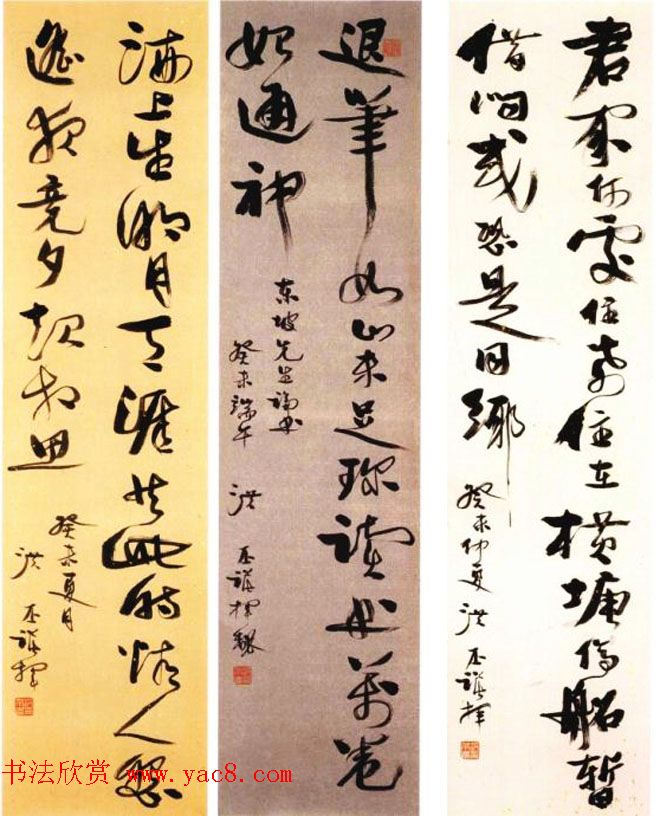 君家何處住妾住在横塘停船暫
借問或恐是同鄉
癸未仲夏 洪丕謨揮
退筆如山未足珍讀書萬卷
始通神
东坡先生論書
癸未端午 洪丕謨揮
海上生明月天涯共此時情人怨
遙夜竟夕起相思
癸未夏月
洪丕謨揮
书法欣赏 www.yac8.com